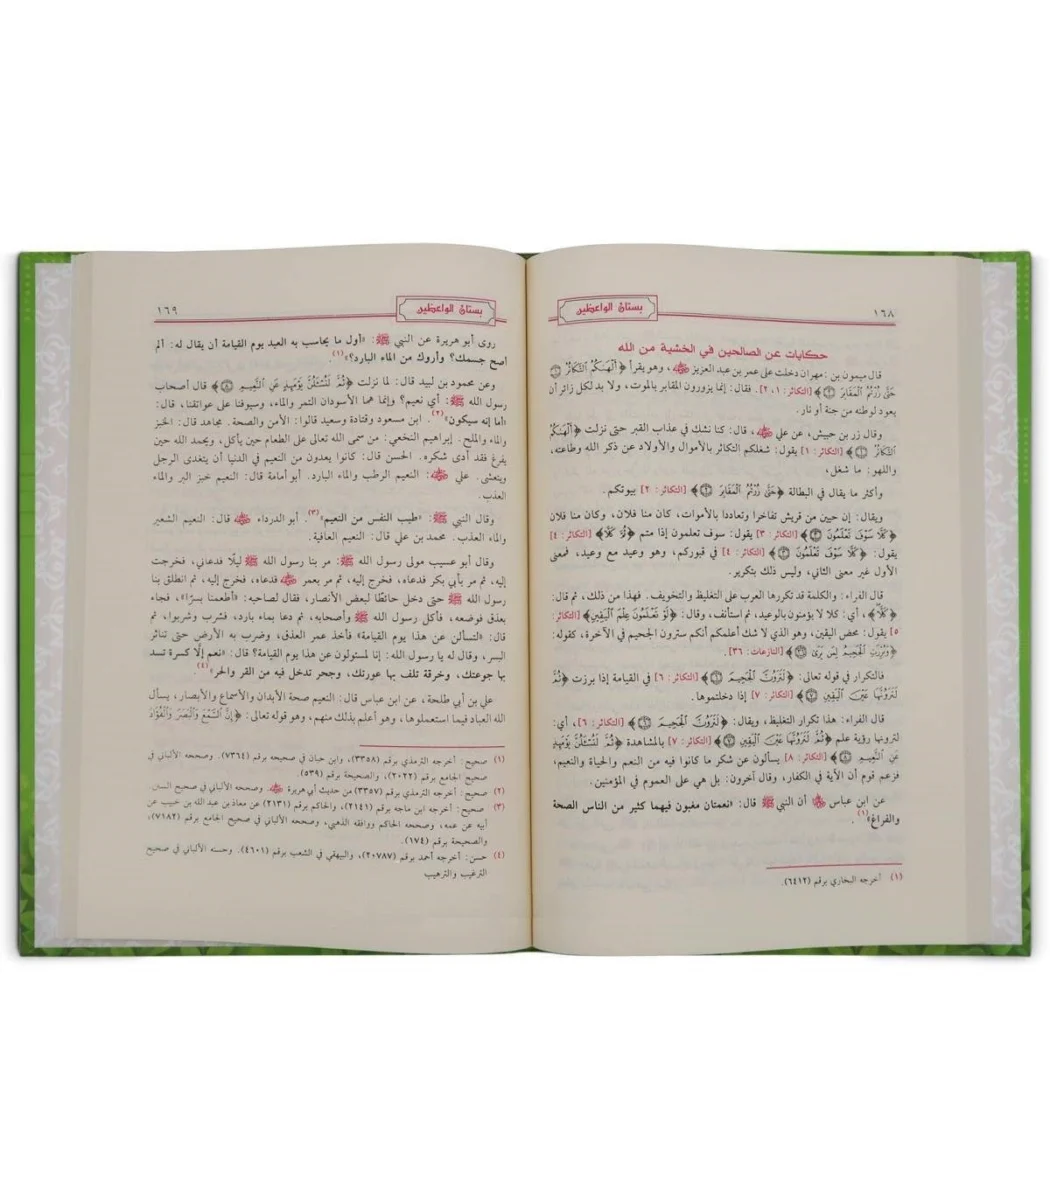 ١٦٨
بستان الواعظين
حكايات عن الصالحين في الخشية من الله
قال ميمون بن مهران: دخلت على عمر بن عبد العزيز ﷺ، وهو يقرأ ﴿أَلْهَىٰكُمُ ٱلتَّكَاثُرُ ۝١
حَتَّىٰ زُرْتُمُ ٱلْمَقَابِرَ ۝٢﴾ [التكاثر: ١، ٢]. فقال: إنما يزورون المقابر بالموت، ولا بد لكل زائر أن
يعود لوطنه من جنة أو نار.
وقال زر بن حبيش، عن علي، قال: كنا نشك في عذاب القبر حتى نزلت ﴿أَلْهَىٰكُمُ
ٱلتَّكَاثُرُ ۝١﴾ [التكاثر: ١] يقول: شغلكم التكاثر بالأموال والأولاد عن ذكر الله وطاعته،
واللهو: ما شغل،
وأكثر ما يقال في البطالة ﴿حَتَّىٰ زُرْتُمُ ٱلْمَقَابِرَ ۝٢﴾ [التكاثر: ٢] بيوتكم.
ويقال: إن حيين من قريش تفاخرا وتعاددا بالأموات، كان منا فلان، وكان منا فلان
﴿كَلَّا سَوْفَ تَعْلَمُونَ ۝٣﴾ [التكاثر: ٣] يقول: سوف تعلمون إذا متم ﴿ثُمَّ كَلَّا﴾ [التكاثر: ٤]
يقول: ﴿كَلَّا سَوْفَ تَعْلَمُونَ ۝﴾ [التكاثر: ٤] في قبوركم، وهو وعيد مع وعيد، فمعنى
الأول غير معنى الثاني، وليس ذلك بتكرير.
قال الفراء: والكلمة قد تكررها العرب على التغليظ والتخويف. فهذا من ذلك، ثم قال:
﴿كَلَّا﴾، أي: كلا لا يؤمنون بالوعيد، ثم استأنف، وقال: ﴿لَوْ تَعْلَمُونَ عِلْمَ ٱلْيَقِينِ﴾ [التكاثر:
٥] يقول: محض اليقين، وهو الذي لا شك أعلمكم أنكم سترون الجحيم في الآخرة، كقوله:
﴿وَبُرِّزَتِ ٱلْجَحِيمُ لِمَن يَرَىٰ ۝٣٦﴾ [النازعات: ٣٦].
فالتكرار في قوله تعالى: ﴿لَتَرَوُنَّ ٱلْجَحِيمَ ۝٦﴾ [التكاثر: ٦] في القيامة إذا برزت ﴿ثُمَّ
لَتَرَوُنَّهَا عَيْنَ ٱلْيَقِينِ ۝٧﴾ [التكاثر: ٧] إذا دخلتموها.
قال الفراء: هذا تكرار التغليظ، ويقال: ﴿لَتَرَوُنَّ ٱلْجَحِيمَ ۝٦﴾ [التكاثر: ٦]، أي:
لترونها رؤية علم ﴿ثُمَّ لَتَرَوُنَّهَا عَيْنَ ٱلْيَقِينِ ۝٧﴾ [التكاثر: ٧] بالمشاهدة ﴿ثُمَّ لَتُسْـَٔلُنَّ يَوْمَئِذٍ
عَنِ ٱلنَّعِيمِ ۝٨﴾ [التكاثر: ٨] يسألون عن شكر ما كانوا فيه من النعم والحياة والنعيم،
فزعم قوم أن الآية في الكفار، وقال آخرون: بل هي على العموم في المؤمنين.
عن ابن عباس أن النبي ﷺ قال: «نعمتان مغبون فيهما كثير من الناس الصحة
والفراغ»(١).
(١) أخرجه البخاري برقم (٦٤١٢).
بستان الواعظين
١٦٩
روى أبو هريرة عن النبي ﷺ: «أول ما يحاسب به العبد يوم القيامة أن يقال له: ألم
أصح جسمك؟ وأروك من الماء البارد؟»(١).
وعن محمود بن لبيد قال: لما نزلت ﴿ثُمَّ لَتُسْـَٔلُنَّ يَوْمَئِذٍ عَنِ ٱلنَّعِيمِ ۝٨﴾ قال أصحاب
رسول الله ﷺ: أي نعيم؟ وإنما هما الأسودان التمر والماء، وسيوفنا على عواتقنا، قال:
«أما إنه سيكون»(٢). ابن مسعود وقتادة وسعيد قالوا: الأمن والصحة. مجاهد قال: الخبز
والماء والملح. إبراهيم النخعي: من سمى الله تعالى على الطعام حين يأكل، ويحمد الله حين
يفرغ فقد أدى شكره. الحسن قال: كانوا يعدون من النعيم في الدنيا أن يتغدى الرجل
ويتعشى. علي: النعيم الرطب والماء البارد. أبو أمامة قال: النعيم خبز البر والماء
العذب.
وقال النبي ﷺ: «طيب النفس من النعيم»(٣). أبو الدرداء قال: النعيم الشعير
والماء العذب. محمد بن علي قال: النعيم العافية.
وقال أبو عسيب مولى رسول الله ﷺ: مر بنا رسول الله ﷺ ليلًا فدعاني، فخرجت
إليه، ثم مر بأبي بكر فدعاه، فخرج إليه، ثم مر بعمر فدعاه، فخرج إليه، ثم انطلق بنا
رسول الله ﷺ حتى دخل حائطًا لبعض الأنصار، فقال لصاحبه: «أطعمنا بسرًا»، فجاء
بعذق فوضعه، فأكل رسول الله ﷺ وأصحابه، ثم دعا بماء بارد، فشرب وشربوا، ثم
قال: «لتسألن عن هذا يوم القيامة» فأخذ عمر العذق، وضرب به الأرض حتى تناثر
البسر، وقال له يا رسول الله: إنا لمسئولون عن هذا يوم القيامة؟ قال: «نعم إلا كسرة تسد
بها جوعتك، وخرقة تلف بها عورتك، وجحر تدخل فيه من القر والحر»(٤).
علي بن أبي طلحة، عن ابن عباس قال: النعيم صحة الأبدان والأسماع والأبصار، يسأل
الله العباد فيما استعملوها، وهو أعلم بذلك منهم، وهو قوله تعالى: ﴿إِنَّ ٱلسَّمْعَ وَٱلْبَصَرَ وَٱلْفُؤَادَ
(١) صحيح: أخرجه الترمذي برقم (٣٣٥٨)، وابن حبان في صحيحه برقم (٧٣٦٤). وصححه الألباني في
صحيح الجامع برقم (٢٠٢٢)، والصحيحة برقم (٥٣٩).
(٢) صحيح: أخرجه الترمذي برقم (٣٣٥٧) من حديث أبي هريرة. وصححه الألباني في صحيح السنن.
(٣) صحيح: أخرجه ابن ماجه برقم (٢١٤١)، والحاكم برقم (٢١٣١) عن معاذ بن عبد الله بن خبيب عن
أبيه عن عمه، وصححه الحاكم ووافقه الذهبي، وصححه الألباني في صحيح الجامع برقم (٧١٨٢)،
والصحيحة برقم (١٧٤).
(٤) حسن: أخرجه أحمد برقم (٢٠٧٨٧)، والبيهقي في الشعب برقم (٤٦٠١). وحسنه الألباني في صحيح
الترغيب والترهيب